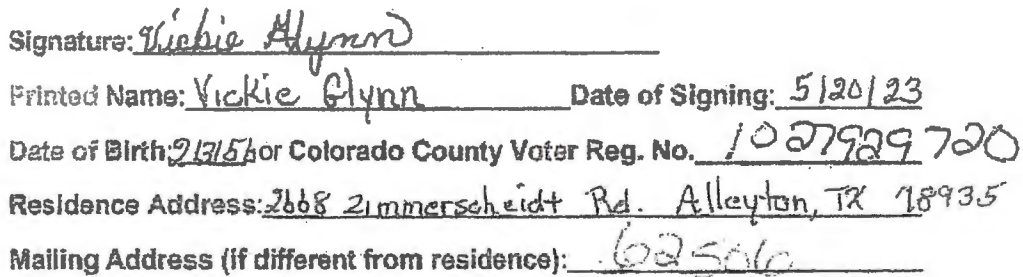 Signature: Vickie Glynn
Printed Name: Vickie Glynn Date of Signing: 5/20/23
Date of Birth: or Colorado County Voter Reg. No. 1027929720
Residence Address: 2668 Zimmerscheidt Rd. Alleyton, TX 78935
Mailing Address (if different from residence):